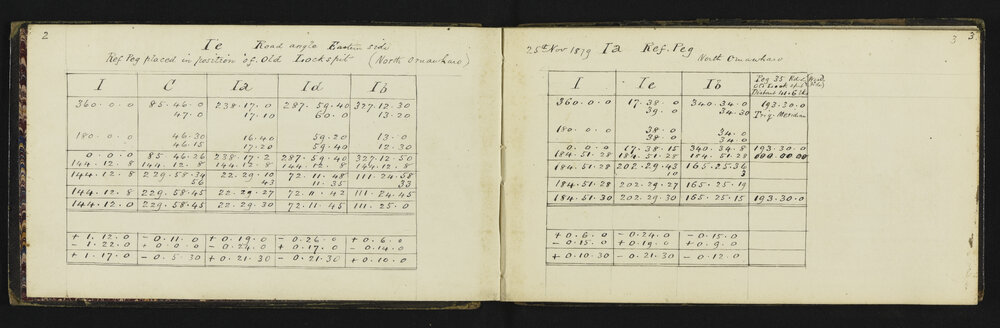 2
Ie Road angle Eastern side
Ref Peg placed in position of Old Lockspit (North Oruawharo)
I C Ia Id Ib
360.0.0 85.46.0 238.17.0 287.59.40 327.12.30
47.0 17.10 60.0 13.20
180.0.0 46.30 16.40 59.20 13.0
46.15 17.20 59.40 12.30
0.0.0 85.46.26 238.17.2 287.59.40 327.12.50
144.12.8 144.12.8 144.12.8 144.12.8 144.12.8
144.12.8 229.58.34 22.29.10 72.11.48 111.24.58
56 43 11.35 33
144.12.8 229.58.45 22.29.27 72.11.42 111.24.45
144.12.0 229.58.45 22.29.30 72.11.45 111.25.0
+1.12.0 -0.11.0 +0.19.0 -0.26.0 +0.6.0
-1.22.0 +0.0.0 -0.24.0 +0.17.0 -0.14.0
+1.17.0 -0.5.30 +0.21.30 -0.21.30 +0.10.0
3 3
25th Nov 1879 Ia Ref. Peg
North Oruawharo
I Ie Ib Peg 35 Rd.
Old Lock spit
Distant
360.0.0 17.38.0 340.34.0 193.30.0
39.0 34.30 Trig Meridian
180.0.0 38.0 34.0
38.0 34.0
0.0.0 17.38.15 340.34.8 193.30.0
184.51.28 184.51.28 184.51.28 000.00.00
184.51.28 202.29.43 165.25.36
10 3
184.51.28 202.29.27 165.25.19
184.51.30 202.29.30 165.25.15 193.30.0
+0.6.0 -0.24.0 -0.15.0
-0.15.0 +0.19.0 +0.9.0
+0.10.30 -0.21.30 -0.12.0